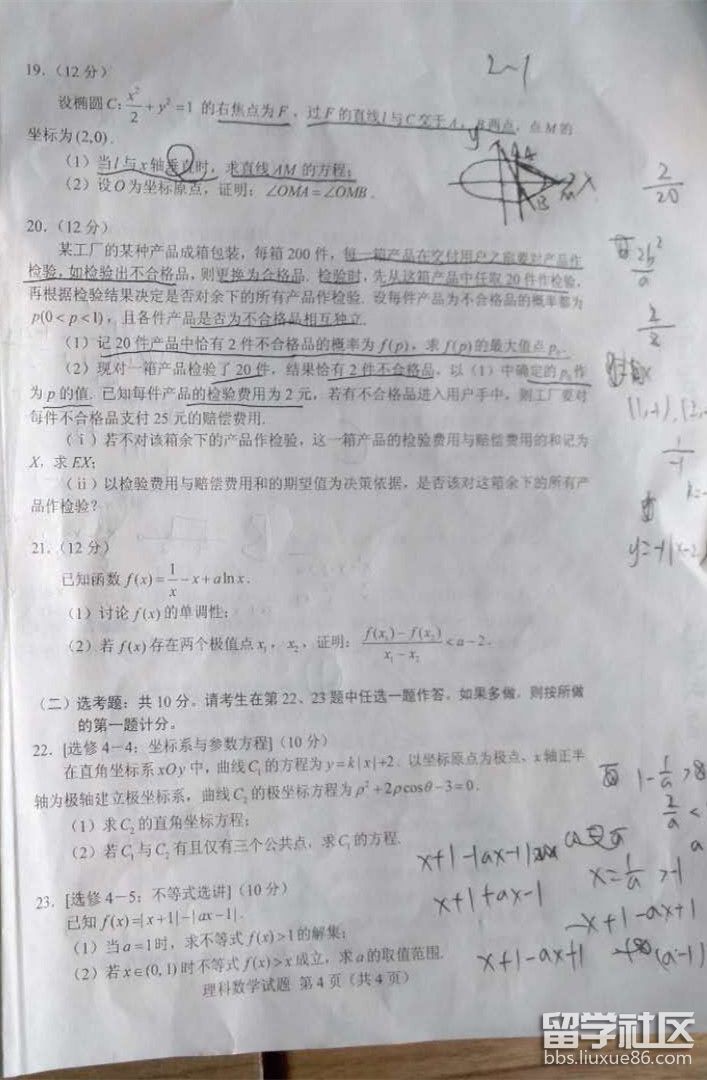 19. (12 分)
设椭圆 C: x²/2 + y² = 1 的右焦点为 F，过 F 的直线 l 与 C 交于 A，B 两点，点 M 的
坐标为 (2,0).
(1) 当 l 与 x 轴垂直时，求直线 AM 的方程;
(2) 设 O 为坐标原点，证明: ∠OMA = ∠OMB.
20. (12 分)
某工厂的某种产品成箱包装，每箱 200 件，每一箱产品在交付用户之前要对产品作
检验，如检验出不合格品，则更换为合格品. 检验时，先从这箱产品中任取 20 件作检验，
再根据检验结果决定是否对余下的所有产品作检验. 设每件产品为不合格品的概率都为
p(0<p<1)，且各件产品是否为不合格品相互独立.
(1) 记 20 件产品中恰有 2 件不合格品的概率为 f(p)，求 f(p) 的最大值点 p₀.
(2) 现对一箱产品检验了 20 件，结果恰有 2 件不合格品，以 (1) 中确定的 p₀ 作
为 p 的值. 已知每件产品的检验费用为 2 元，若有不合格品进入用户手中，则工厂要对
每件不合格品支付 25 元的赔偿费用.
(ⅰ) 若不对该箱余下的产品作检验，这一箱产品的检验费用与赔偿费用的和记为
X，求 EX;
(ⅱ) 以检验费用与赔偿费用和的期望值为决策依据，是否该对这箱余下的所有产
品作检验?
21. (12 分)
已知函数 f(x) = 1/x - x + a ln x.
(1) 讨论 f(x) 的单调性;
(2) 若 f(x) 存在两个极值点 x₁，x₂，证明: (f(x₁) - f(x₂))/(x₁ - x₂) < a - 2.
(二) 选考题: 共 10 分。请考生在第 22、23 题中任选一题作答。如果多做，则按所做
的第一题计分。
22. [选修 4－4: 坐标系与参数方程] (10 分)
在直角坐标系 xOy 中，曲线 C₁ 的方程为 y = k|x| + 2. 以坐标原点为极点、x 轴正半
轴为极轴建立极坐标系，曲线 C₂ 的极坐标方程为 ρ² + 2ρcosθ - 3 = 0.
(1) 求 C₂ 的直角坐标方程;
(2) 若 C₁ 与 C₂ 有且仅有三个公共点，求 C₁ 的方程.
23. [选修 4－5: 不等式选讲] (10 分)
已知 f(x) = |x+1| - |ax-1|.
(1) 当 a=1 时，求不等式 f(x)>1 的解集;
(2) 若 x∈(0,1) 时不等式 f(x)>x 成立，求 a 的取值范围.
理科数学试题 第 4 页 (共 4 页)
2-1
y
A
X
B
M
2/20
2b²/a
2/2
1/-1
x+1-|ax-1|
x+1+ax-1
x=1/a >1
-x+1-ax+1
x+1-ax+1
(a-1)
留学社区
bbs.liuxue86.com